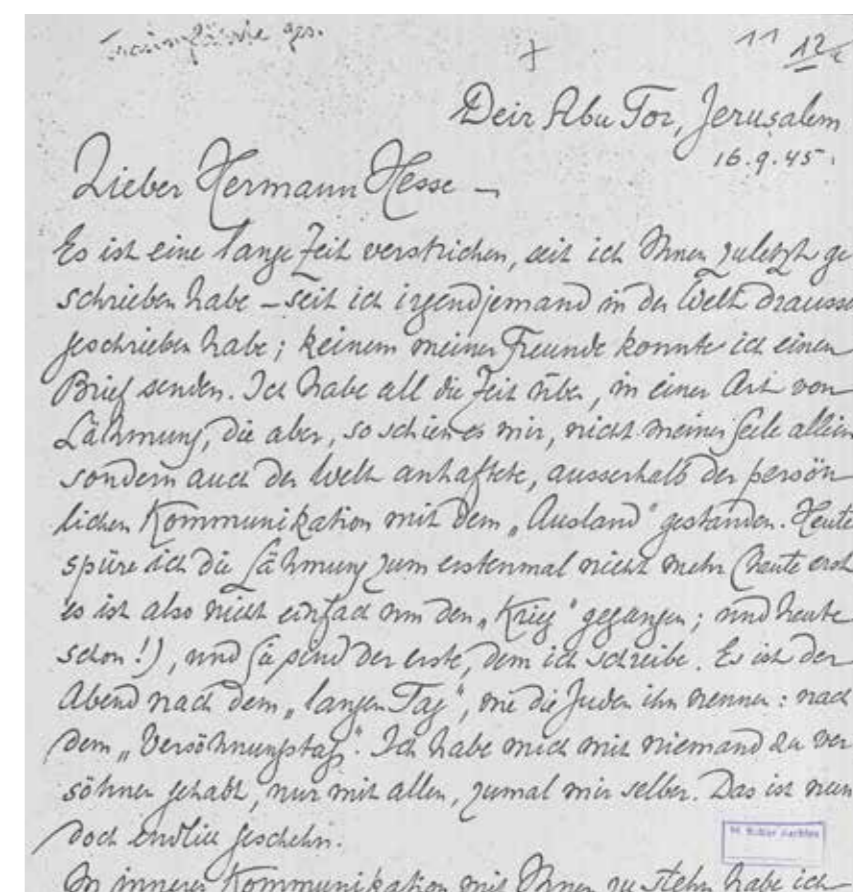 11 12
Deir Abu Tor, Jerusalem
16.9.45.
Lieber Hermann Hesse –
Es ist eine lange Zeit verstrichen, seit ich Ihnen zuletzt ge
schrieben habe – seit ich irgendjemand in der Welt drausse
geschrieben habe; keinem meiner Freunde konnte ich einen
Brief senden. Ich habe all die Zeit über, in einer Art von
Lähmung, die aber, so schien es mir, nicht meiner Seele allein
sondern auch der Welt anhaftete, ausserhalb der persön
lichen Kommunikation mit dem „Ausland" gestanden. Heute
spüre ich die Lähmung zum erstenmal nicht mehr (heute erst
es ist also nicht einfach um den „Krieg" gegangen; und heute
schon!), und Sie sind der erste, dem ich schreibe. Es ist der
Abend nach dem „langen Tag", wie die Juden ihn nennen: nach
dem „Versöhnungstag". Ich habe mich mit niemand zu ver
söhnen gehabt, nur mit allen, zumal mir selber. Das ist nun
doch endlich geschehn.
In innerer Kommunikation mit Ihnen zu stehn habe ich